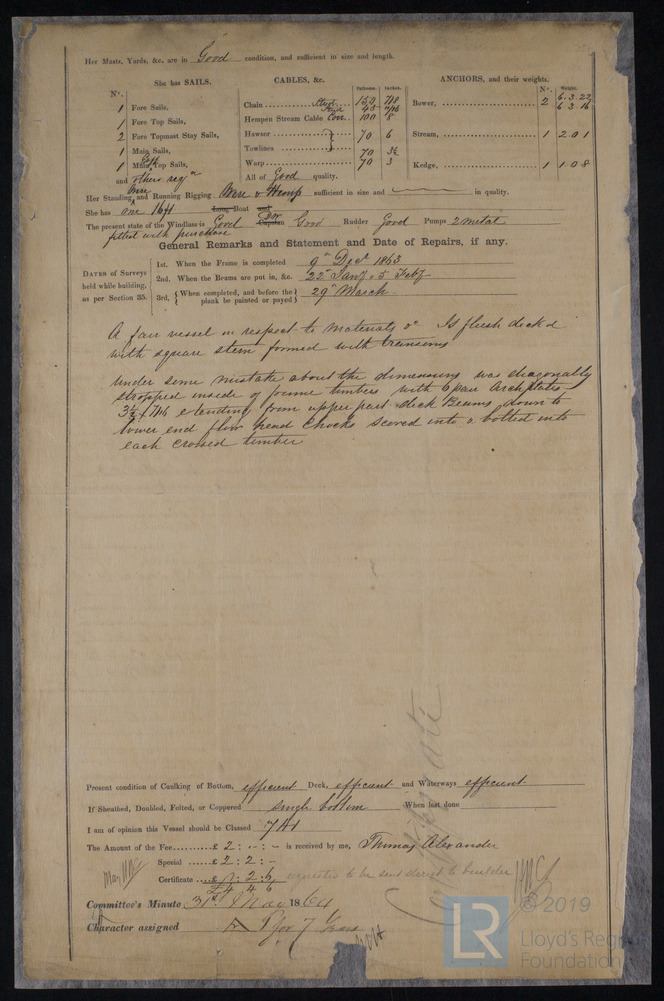 Her Masts, Yards, &c. are in Good condition, and sufficient in size and length.
She has SAILS.
No.
1 Fore Sails,
1 Fore Top Sails,
2 Fore Topmast Stay Sails,
1 Main Sails,
1 Main Top Sails,
and others reqd
CABLES, &c.
Fathoms. Inches.
Chain Stud 150 7/8
Stud 45
Hempen Stream Cable 100 8
Hawser 70 6
Towlines 70 3½
Warp 70 3
All of Good quality.
ANCHORS, and their weights.
No. Weight.
Bower, 2 6.3.22
6.3.16
Stream, 1 2.0.1
Kedge, 1 1.0.8
Her Standing and Running Rigging Wire & Hemp sufficient in size and in quality.
She has one 16ft Long Boat and
The present state of the Windlass is Good Capstan Good Rudder Good Pumps 2 metal
fitted with purchase
General Remarks and Statement and Date of Repairs, if any.
DATES of Surveys held while building, as per Section 35.
1st. When the Frame is completed 9th Decr 1863
2nd. When the Beams are put in, &c. 22nd Jany & 5 Feby
3rd. { When completed, and before the plank be painted or payed } 29th March
A fair vessel in respect to materials &c Is flush deck'd
with square stern formed with transoms
Under some mistake about the dimensions was diagonally
strapped inside of frame timbers with 6 pair Arch plates
3½ x 7/16 extending from upper part deck Beams down to
lower end floor head Chocks scored into & bolted into
each crossed timber
Certificate
Present condition of Caulking of Bottom, efficient Deck, efficient and Waterways efficient
If Sheathed, Doubled, Felted, or Coppered single bottom When last done
I am of opinion this Vessel should be Classed 7A1
The Amount of the Fee £ 2 : - : - is received by me, Thomas Alexander
Special £ 2 : 2 : -
Certificate £ : 2 : 6 requested to be sent direct to builder
£4 4 6
Committee's Minute 31st May 1864
Character assigned A 1 for 7 Years
© 2019
LR
Lloyd's Register
Foundation